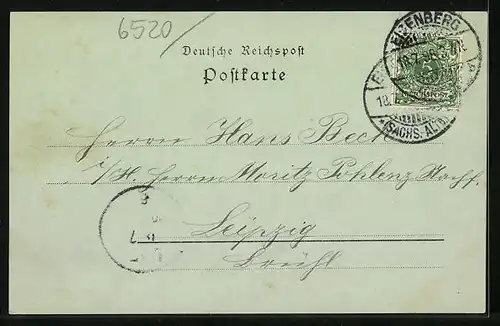 6520
Deutsche Reichspost
Postkarte
EISENBERG
18.7.
5
(SACHS. ALTB.)
Herrn Hans Beck
i/H. Herrn Moritz Pohlenz Nachf.
Leipzig
Brühl